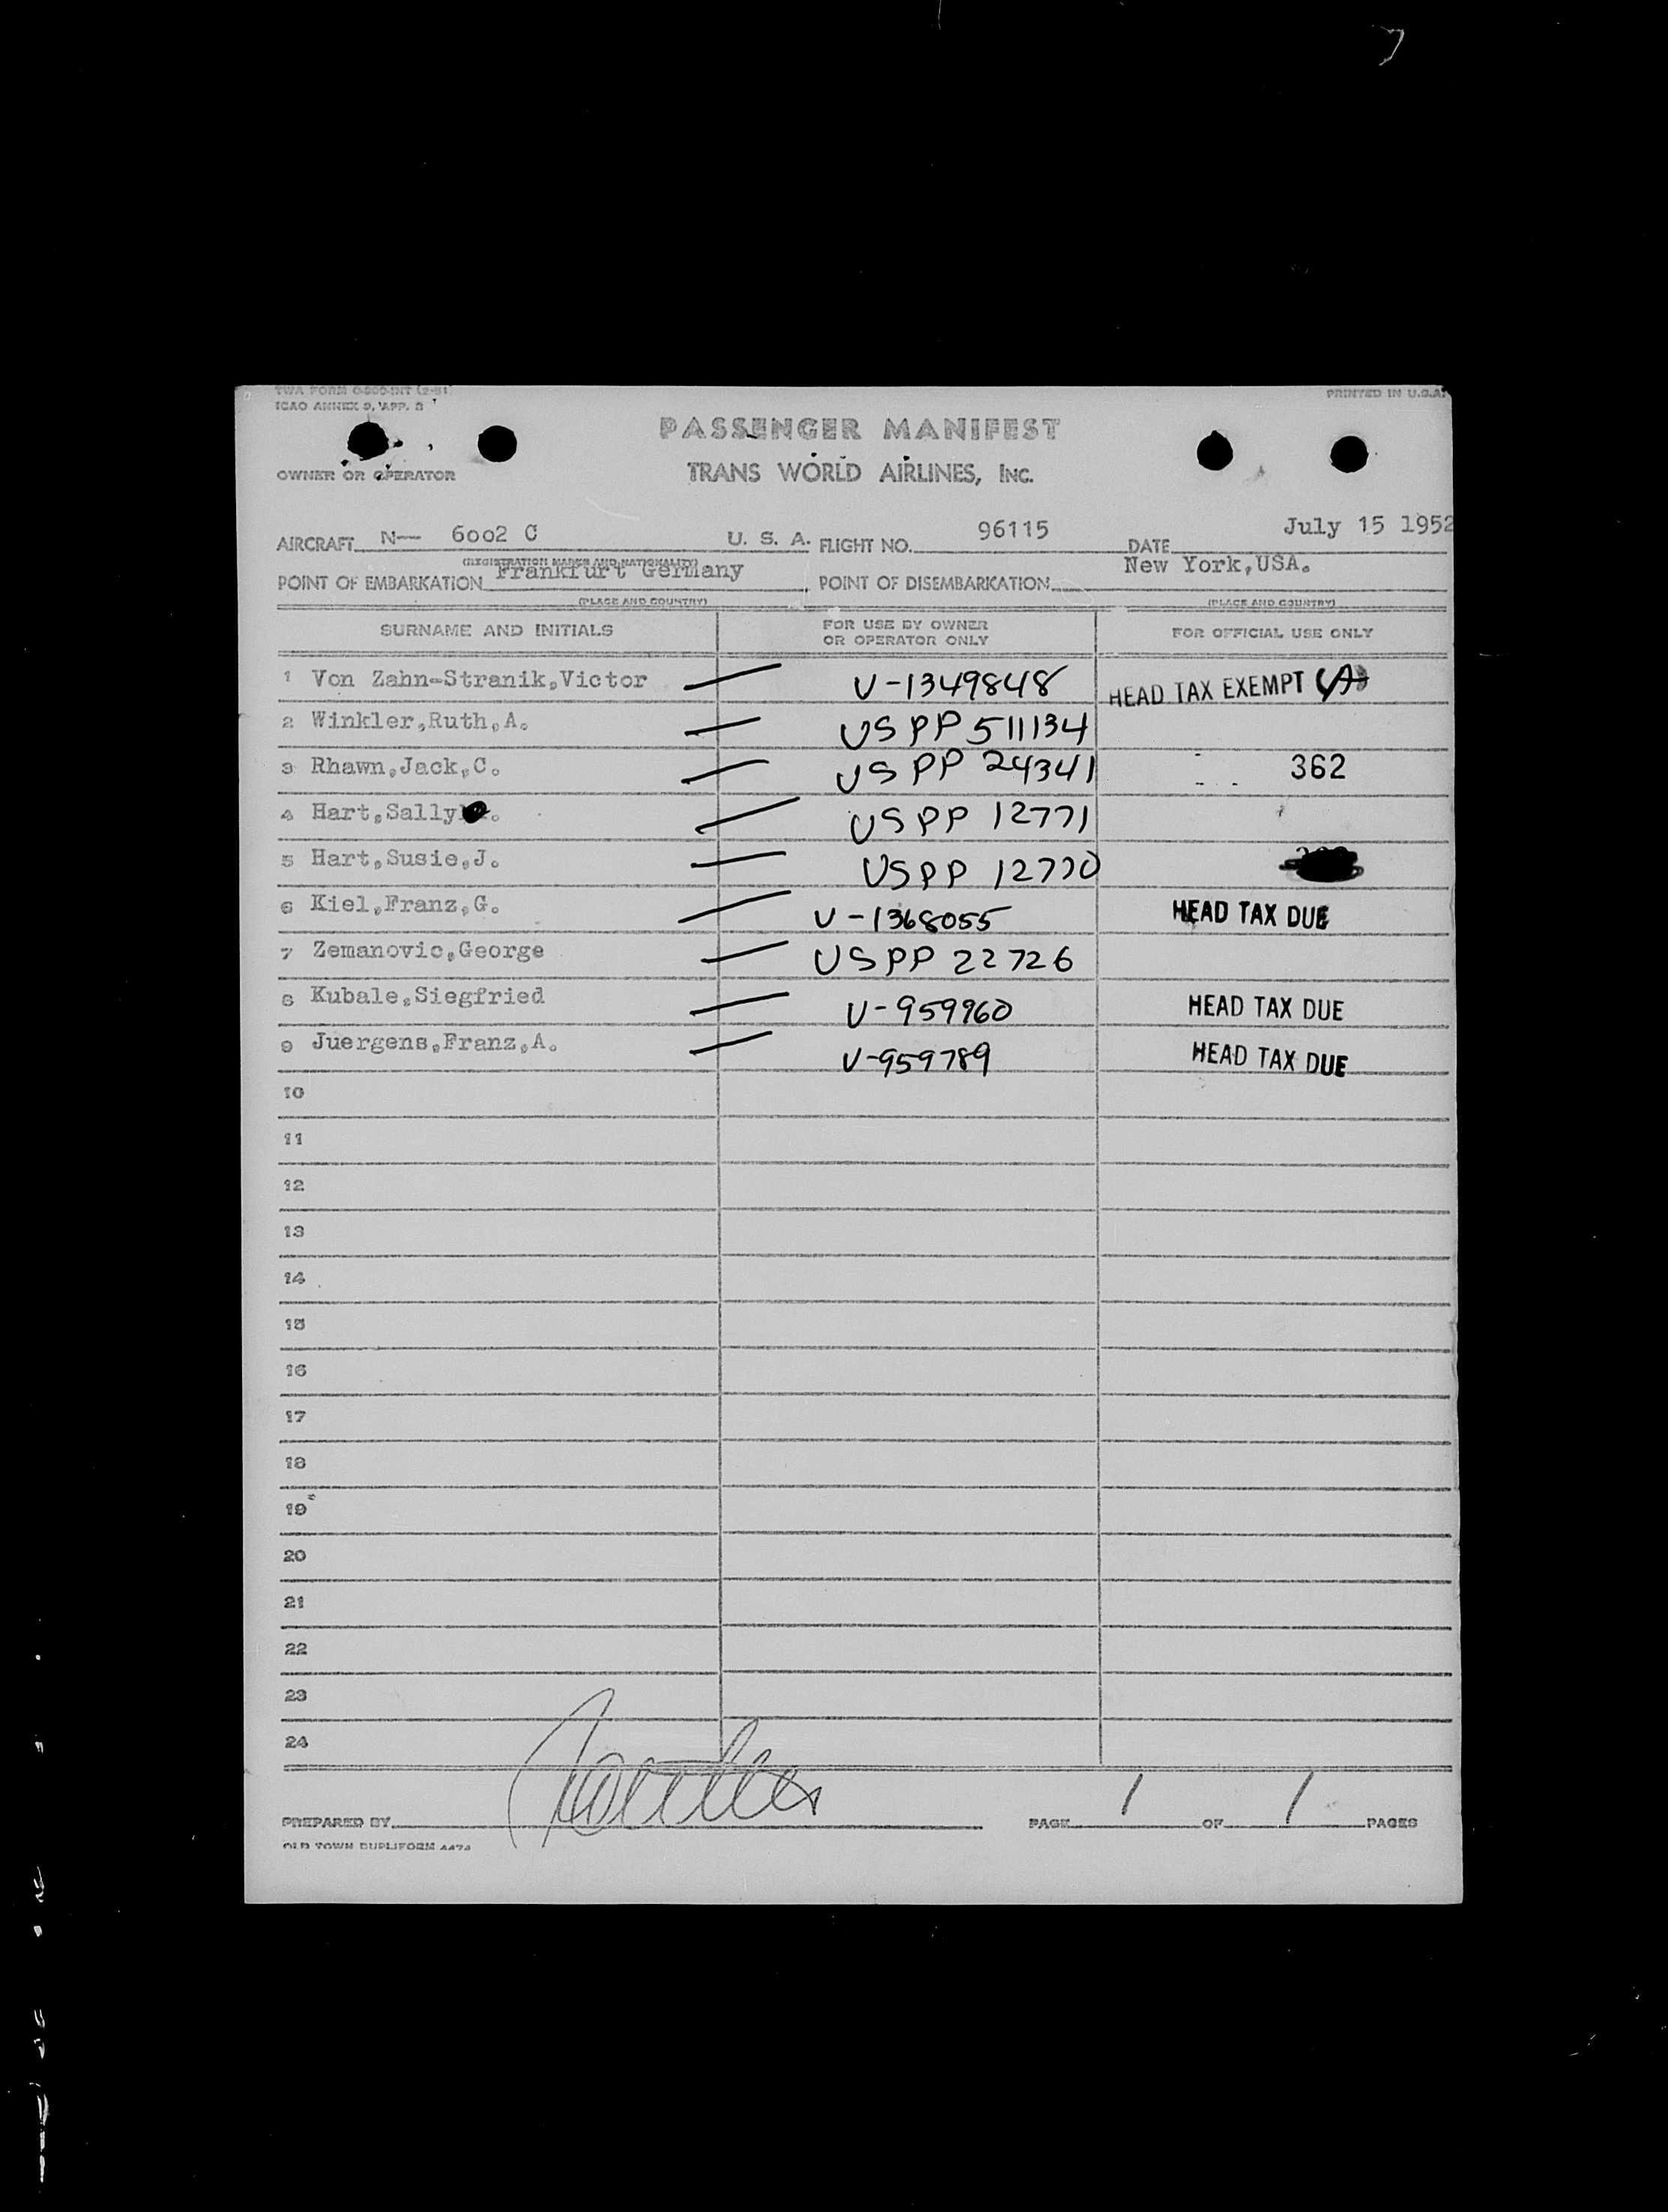 TWA FORM
ICAO ANNEX 9, APP. 2
PRINTED IN U.S.A.
PASSENGER MANIFEST
OWNER OR OPERATOR
TRANS WORLD AIRLINES, INC.
AIRCRAFT N— 6002 C U. S. A. FLIGHT NO. 96115 DATE July 15 1952
(REGISTRATION MARKS AND NATIONALITY)
POINT OF EMBARKATION Frankfurt Germany, POINT OF DISEMBARKATION New York,USA.
(PLACE AND COUNTRY) (PLACE AND COUNTRY)
SURNAME AND INITIALS FOR USE BY OWNER OR OPERATOR ONLY FOR OFFICIAL USE ONLY
1 Von Zahn-Stranik,Victor — V-1349848 HEAD TAX EXEMPT
2 Winkler,Ruth,A. — US PP 511134
3 Rhawn,Jack,C. — US PP 24341 362
4 Hart,Sally — US PP 12771
5 Hart,Susie,J. — US PP 12770
6 Kiel,Franz,G. — V-1368055 HEAD TAX DUE
7 Zemanovic,George — US PP 22726
8 Kubale,Siegfried — V-959960 HEAD TAX DUE
9 Juergens,Franz,A. — V-959789 HEAD TAX DUE
10
11
12
13
14
15
16
17
18
19
20
21
22
23
24
PREPARED BY PAGE 1 OF 1 PAGES
OLD TOWN DUPLIFORM 4474